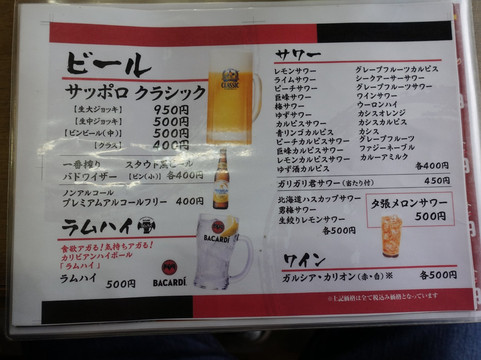 ビール
サッポロ クラシック
【生大ジョッキ】 950円
【生中ジョッキ】 500円
【ビンビール(中)】 500円
【グラス】 400円
一番搾り スタウト黒ビール
バドワイザー 【ビン(小)】 各400円
ノンアルコール
プレミアムアルコールフリー 400円
CLASSIC
ラムハイ
食欲アガる!気持ちアガる!
カリビアンハイボール
「ラムハイ」
ラムハイ 500円
BACARDÍ
BACARDÍ
サワー
レモンサワー
ライムサワー
ピーチサワー
巨峰サワー
梅サワー
ゆずサワー
カルピスサワー
青リンゴカルピス
ピーチカルピスサワー
巨峰カルピスサワー
レモンカルピスサワー
ゆず酒カルピス
グレープフルーツカルピス
シークアーサーサワー
グレープフルーツサワー
ワインサワー
ウーロンハイ
カシスオレンジ
カシスカルピス
カシス
グレープフルーツ
ファジーネーブル
カルーアミルク
各400円
ガリガリ君サワー(当たり付) 450円
北海道ハスカップサワー
男梅サワー
生絞りレモンサワー
各500円
夕張メロンサワー
500円
ワイン
ガルシア・カリオン(赤・白)※ 各500円
※上記価格は全て税込み価格となっています